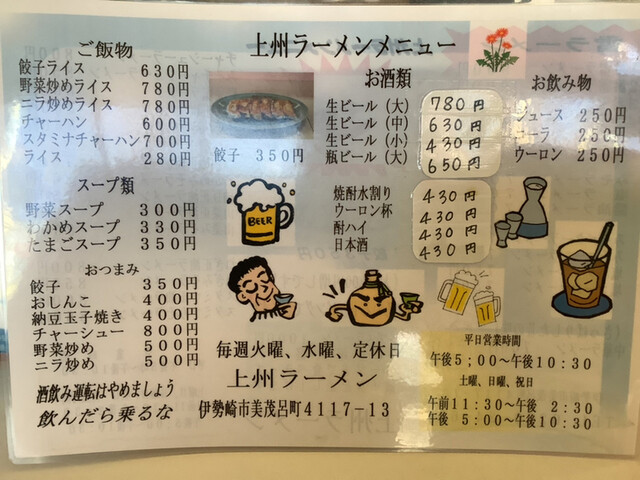 上州ラーメンメニュー
ご飯物
餃子ライス 630円
野菜炒めライス 780円
ニラ炒めライス 780円
チャーハン 600円
スタミナチャーハン 700円
ライス 280円
スープ類
野菜スープ 300円
わかめスープ 330円
たまごスープ 350円
おつまみ
餃子 350円
おしんこ 400円
納豆玉子焼き 400円
チャーシュー 800円
野菜炒め 500円
ニラ炒め 500円
酒飲み運転はやめましょう
飲んだら乗るな
餃子 350円
BEER
お酒類
生ビール(大) 780円
生ビール(中) 630円
生ビール(小) 430円
瓶ビール(大) 650円
焼酎水割り 430円
ウーロン杯 430円
酎ハイ 430円
日本酒 430円
お飲み物
ジュース 250円
コーラ 250円
ウーロン 250円
毎週火曜、水曜、定休日
上州ラーメン
伊勢崎市美茂呂町4117-13
平日営業時間
午後5;00~午後10:30
土曜、日曜、祝日
午前11:30~午後 2:30
午後 5:00~午後10:30